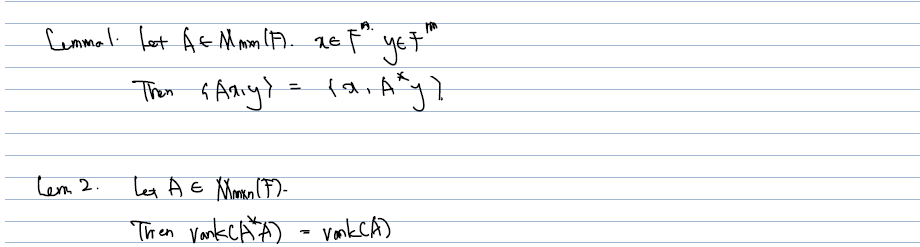 Lemma 1. Let A ∈ Mmxn(F). x ∈ Fⁿ. y ∈ Fᵐ
Then ⟨Ax, y⟩ = ⟨x, A*y⟩.
Lem 2. Let A ∈ Mmxn(F).
Then rank(A*A) = rank(A)